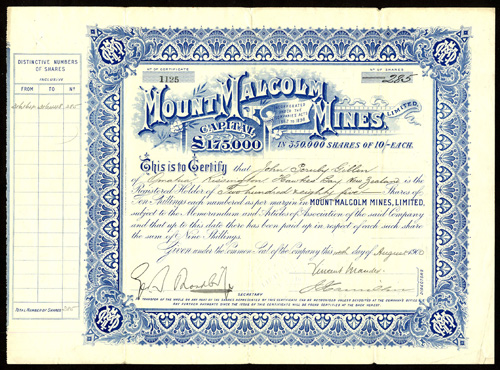 DISTINCTIVE NUMBERS
OF SHARES
INCLUSIVE
FROM TO Nº
Nº OF CERTIFICATE
1125
Nº OF SHARES
285
MOUNT MALCOLM
MINES, LIMITED.
INCORPORATED
UNDER THE
COMPANIES ACTS
CAPITAL
£175,000
IN 350,000 SHARES OF 10/- EACH.
This is to Certify that John
of Hawkes Bay New Zealand is the
Registered Holder of Two hundred eighty five Shares of
Ten Shillings each numbered as per margin in MOUNT MALCOLM MINES, LIMITED,
subject to the Memorandum and Articles of Association of the said Company
and that up to this date there has been paid up in respect of each such share
the sum of Nine Shillings.
Given under the Common Seal of the Company this day of August 1900
DIRECTORS
SECRETARY
TRANSFER OF THE WHOLE OR ANY PART OF THE SHARES REPRESENTED BY THIS CERTIFICATE CAN BE REGISTERED UNLESS DEPOSITED AT THE COMPANY'S OFFICE
ANY FURTHER PAYMENTS SINCE THE ISSUE OF THIS CERTIFICATE WILL BE FOUND CERTIFIED ON THE BACK HEREOF.
TOTAL NUMBER OF SHARES 285